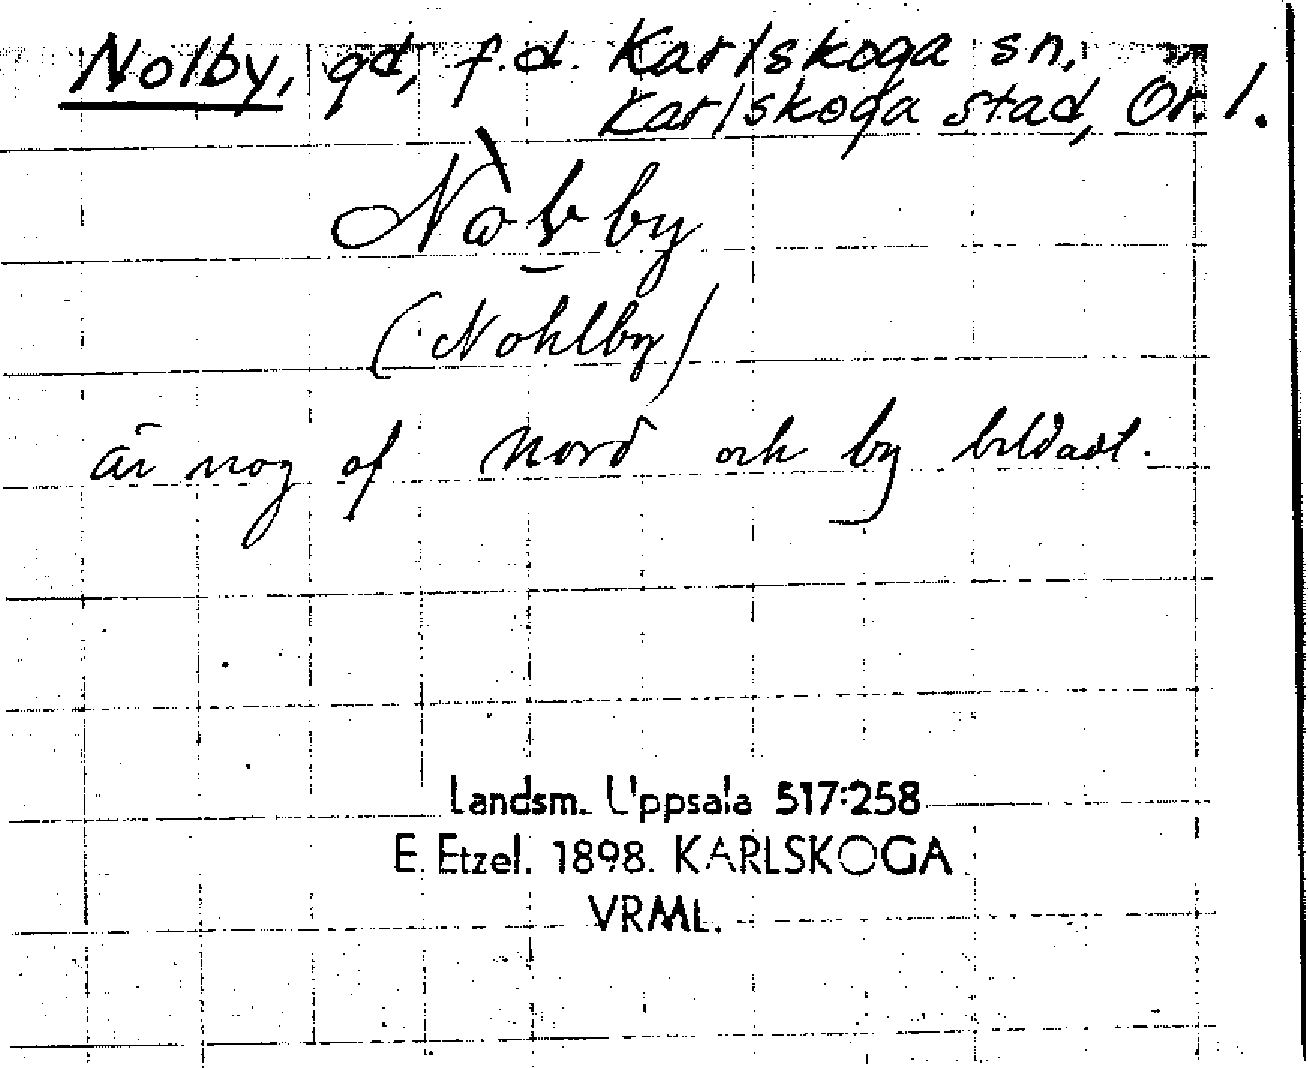 Nolby, gd, f.d. Karlskoga sn,
Karlskoga stad, Ör. l.
(Nohlby)
är nog af Nord och by bildadt.
Landsm. Uppsala 517:258
E. Etzel. 1898. KARLSKOGA
VRML.